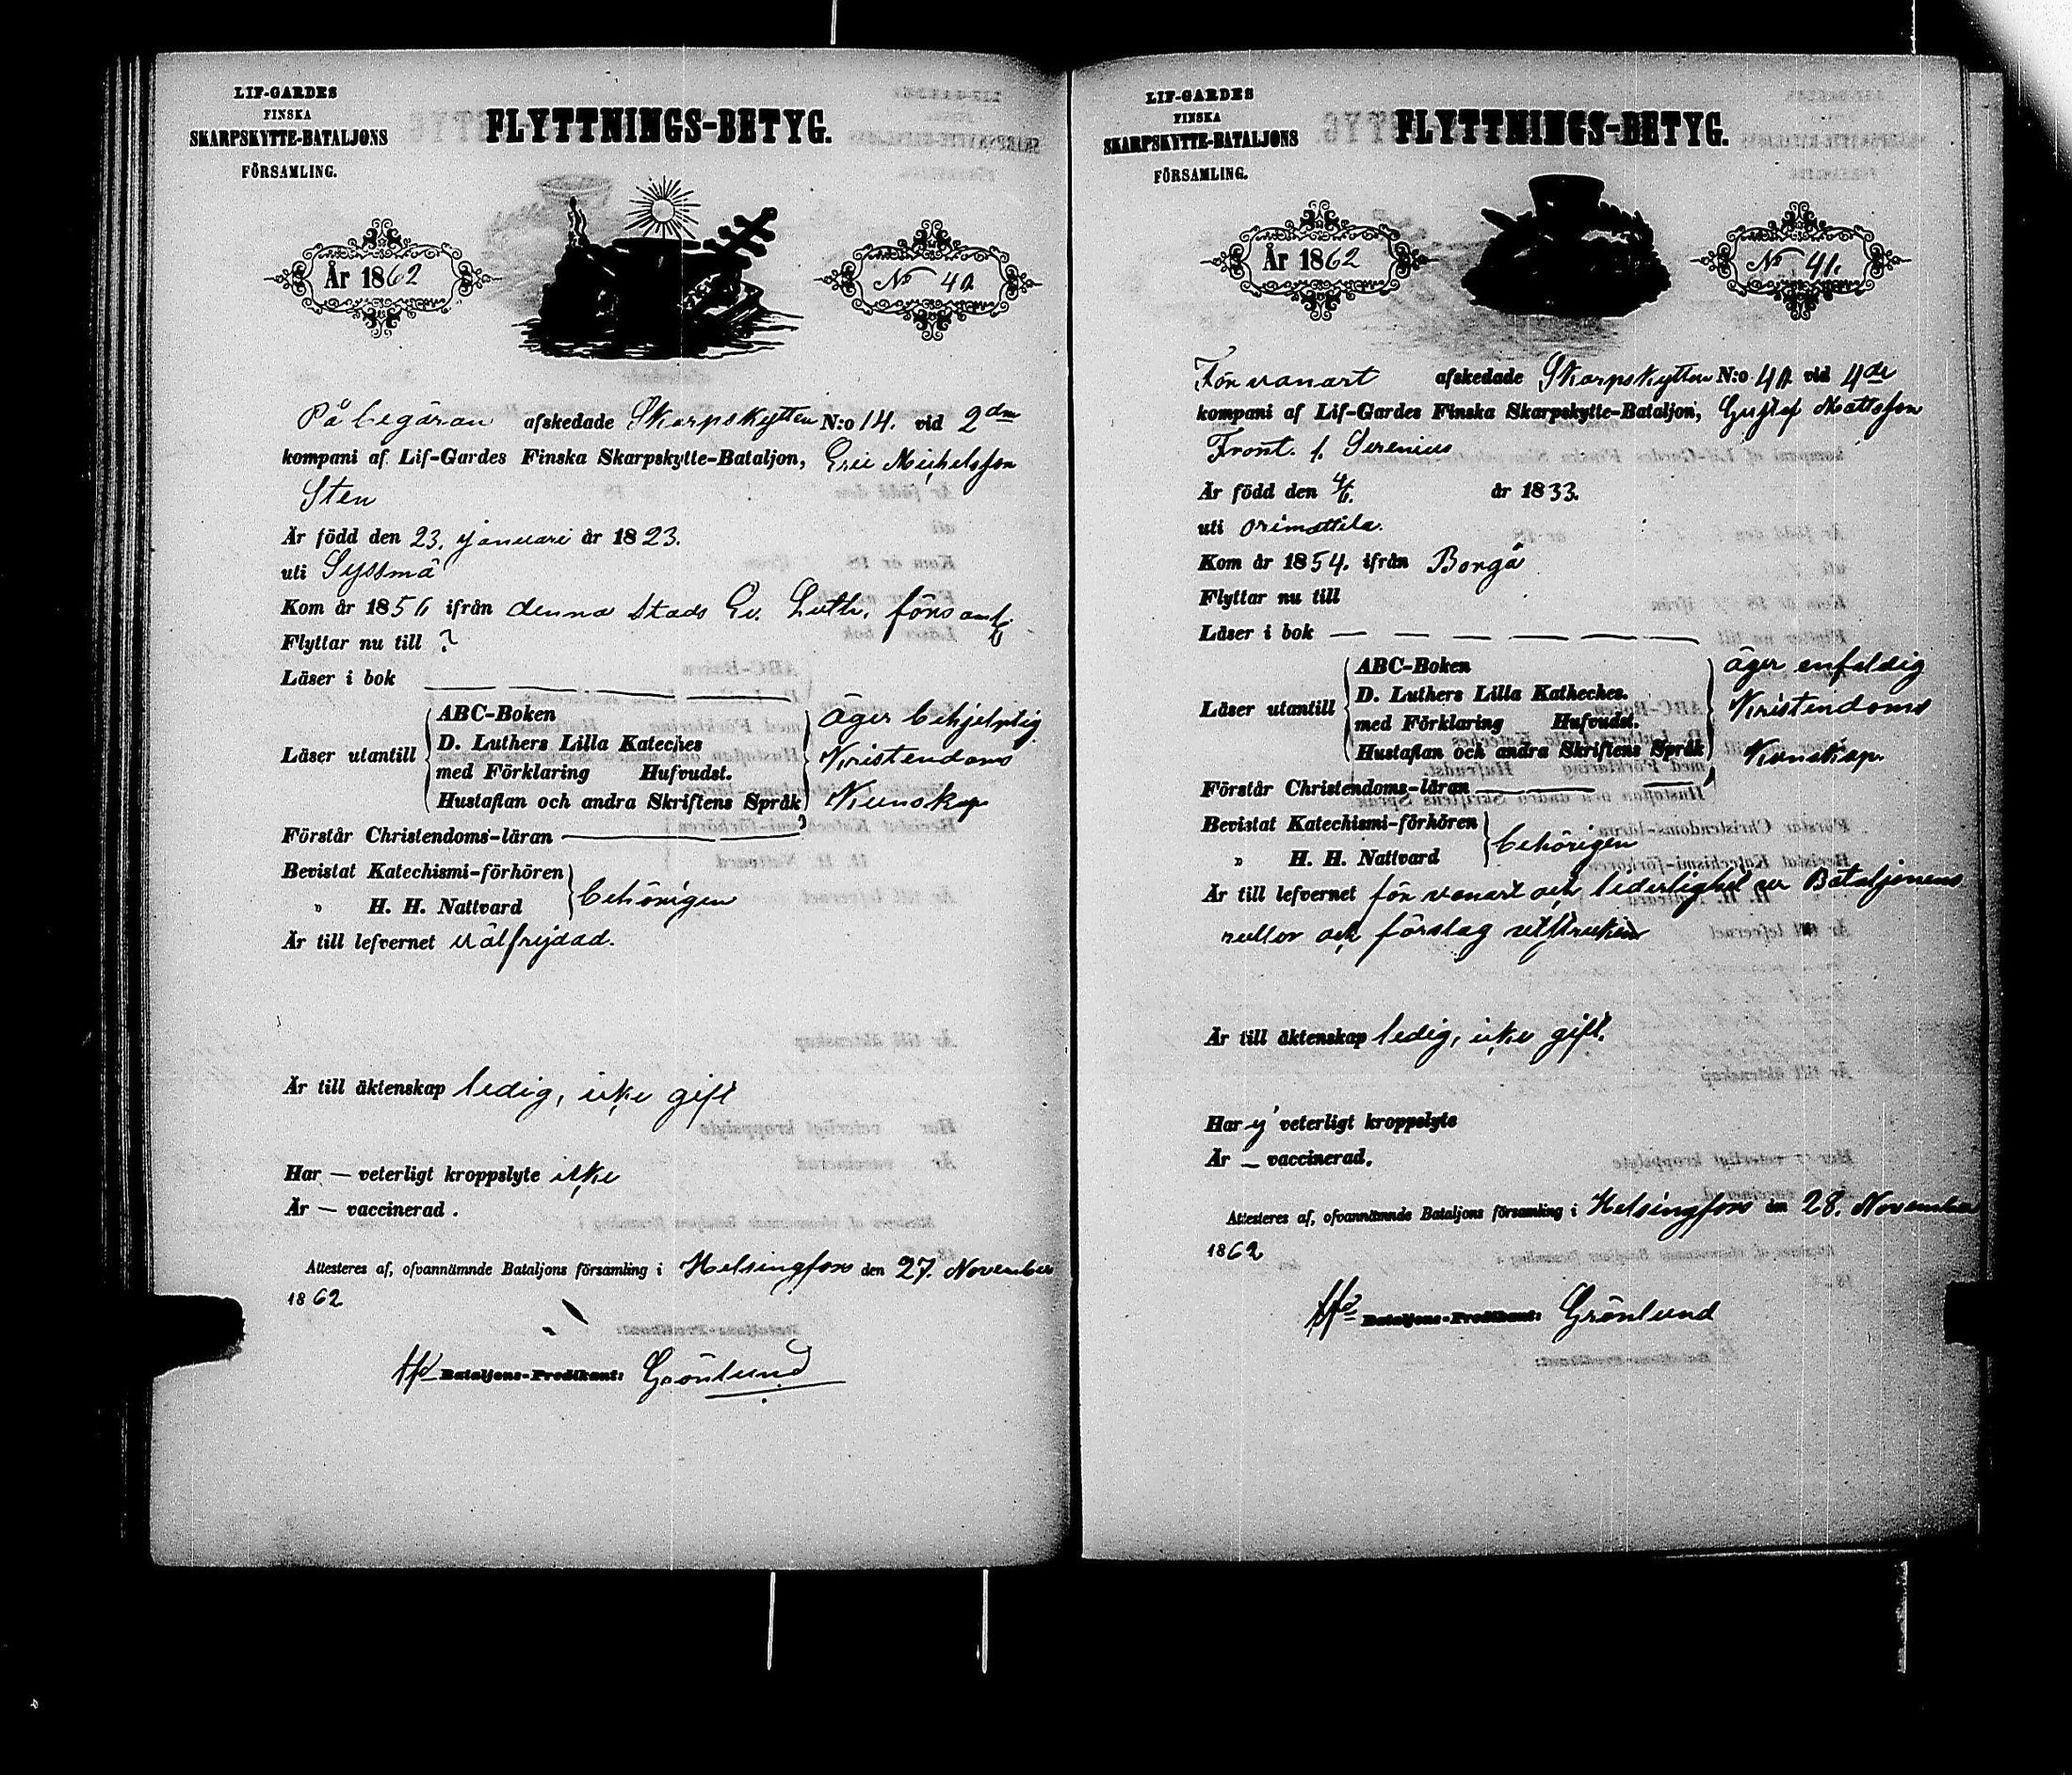 LIF-GARDES
FINSKA
SKARPSKYTTE-BATALJONS
FÖRSAMLING.
FLYTTNINGS-BETYG.
År 1862
No 40
På begäran afskedade Skarpskytten N:o 14. vid 2dra
kompani af Lif-Gardes Finska Skarpskytte-Bataljon, Eric Michelsson
Sten
Är född den 23. januari år 1823.
uti Syssmä
Kom år 1856 ifrån denna Stads Ev. Luth. förs.
Flyttar nu till ?
Läser i bok — — — —
Läser utantill
ABC-Boken
D. Luthers Lilla Kateches
med Förklaring Hufvudst.
Hustaflan och andra Skriftens Språk
äger behjelplig
Kristendoms
Kunskap
Förstår Christendoms-läran —
Bevistat Katechismi-förhören
" H. H. Nattvard
behörigen
Är till lefvernet välfrejdad.
Är till äktenskap ledig, icke gift
Har — veterligt kroppslyte icke
Är — vaccinerad .
Attesteres af, ofvannämnde Bataljons församling i Helsingfors den 27. November
1862
Bataljons-Predikant: Grönlund
LIF-GARDES
FINSKA
SKARPSKYTTE-BATALJONS
FÖRSAMLING.
FLYTTNINGS-BETYG.
År 1862
No 41.
För vanart afskedade Skarpskytten N:o 40 vid 4de
kompani af Lif-Gardes Finska Skarpskytte-Bataljon, Gustaf Mattsson
Front. f. Serenius
Är född den 4/6. år 1833.
uti Orimattila.
Kom år 1854. ifrån Borgå
Flyttar nu till
Läser i bok — — — — —
Läser utantill
ABC-Boken
D. Luthers Lilla Katheches.
med Förklaring Hufvudst.
Hustaflan och andra Skriftens Språk
äger enfaldig
Kristendoms
Kunskap.
Förstår Christendoms-läran — — —
Bevistat Katechismi-förhören
" H. H. Nattvard
behörigen
Är till lefvernet för vanart och liderlighet ur Bataljonens
rullor och förslag utstruken
Är till äktenskap ledig, icke gift.
Har ej veterligt kroppslyte
Är — vaccinerad.
Attesteres af, ofvannämnde Bataljons församling i Helsingfors den 28. November
1862
Bataljons-Predikant: Grönlund